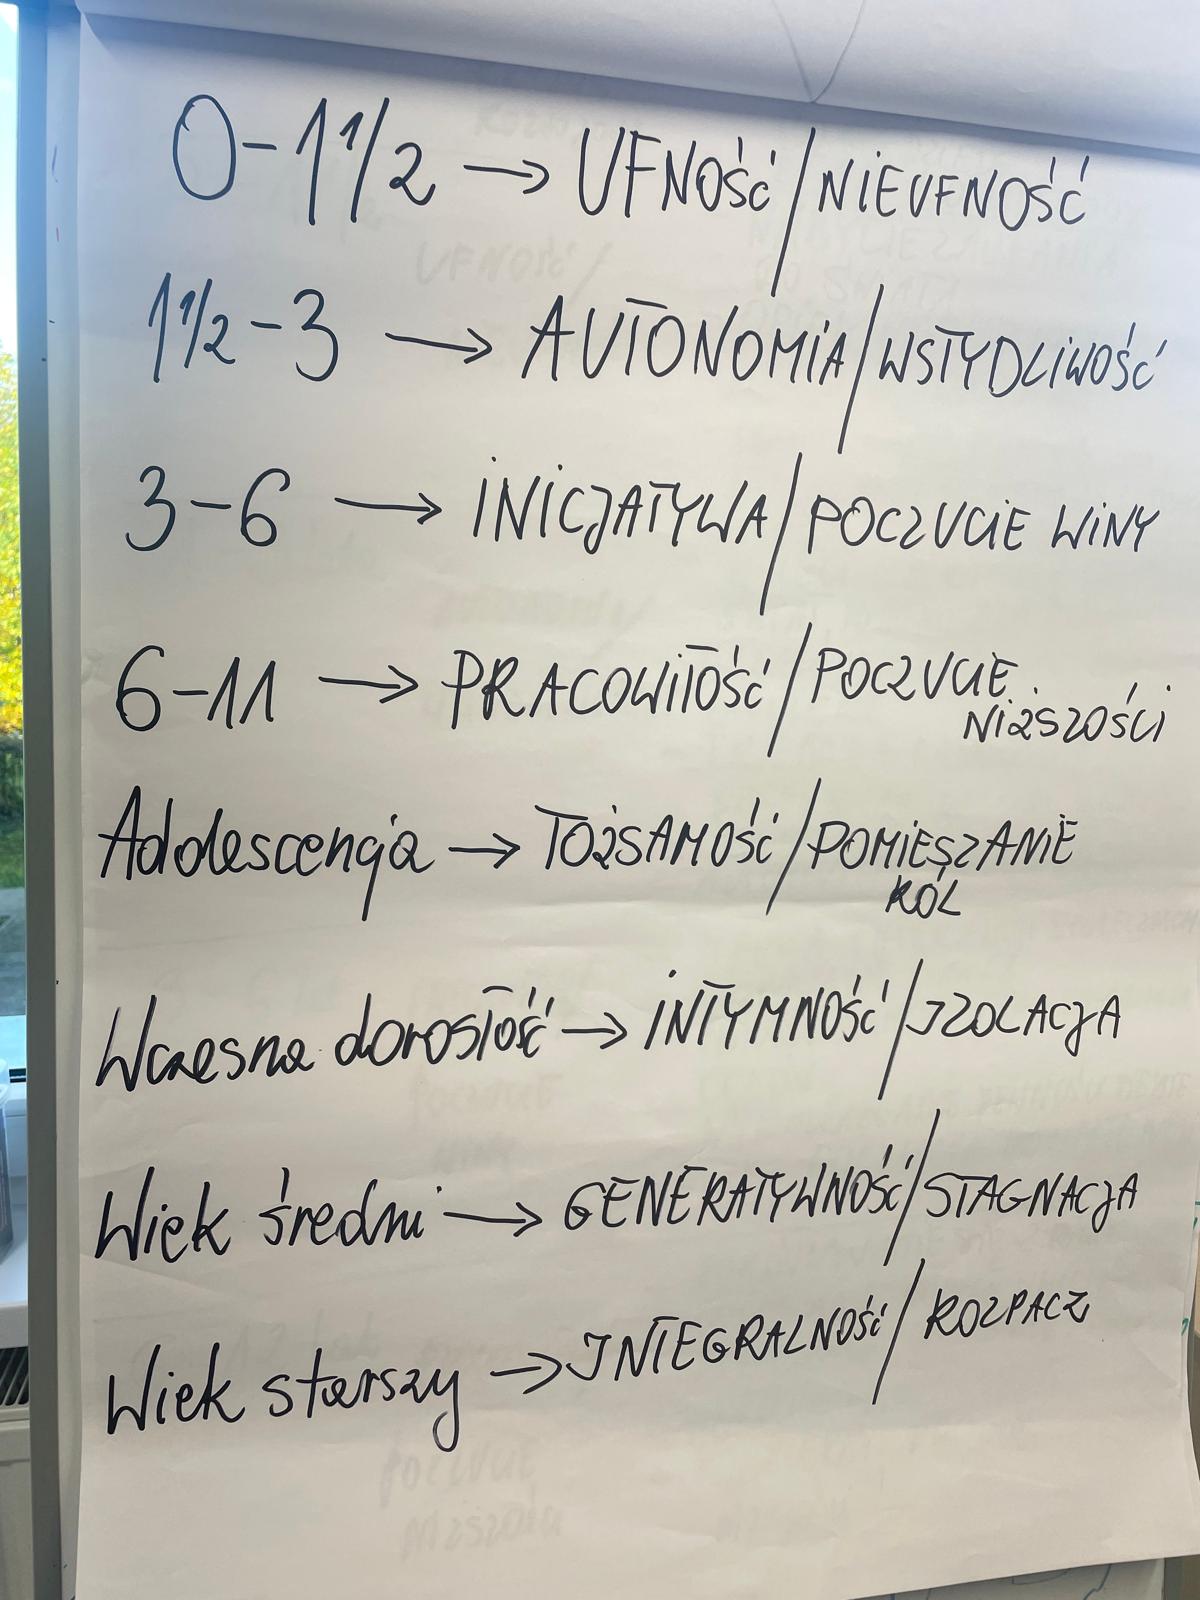 0-1 1/2 → UFNOŚĆ/NIEUFNOŚĆ
1 1/2-3 → AUTONOMIA/WSTYDLIWOŚĆ
3-6 → INICJATYWA/POCZUCIE WINY
6-11 → PRACOWITOŚĆ/POCZUCIE
NIŻSZOŚCI
Adolescencja → TOŻSAMOŚĆ/POMIESZANIE
RÓL
Wczesna dorosłość → INTYMNOŚĆ/IZOLACJA
Wiek średni → GENERATYWNOŚĆ/STAGNACJA
Wiek starszy → INTEGRALNOŚĆ/ROZPACZ